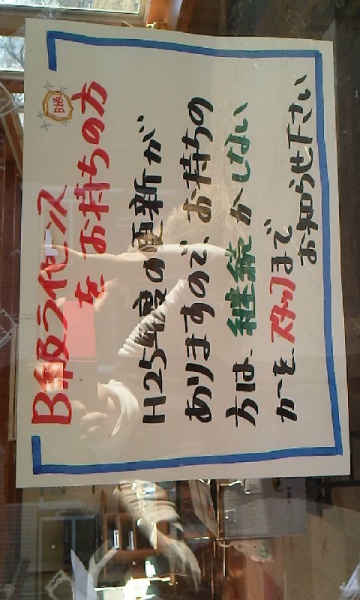 B級ライセンス
をお持ちの方
B級
H25年度の更新が
ありますので、お持ちの
方は 継続 かしない
かを スタッフまで
お知らせ下さい